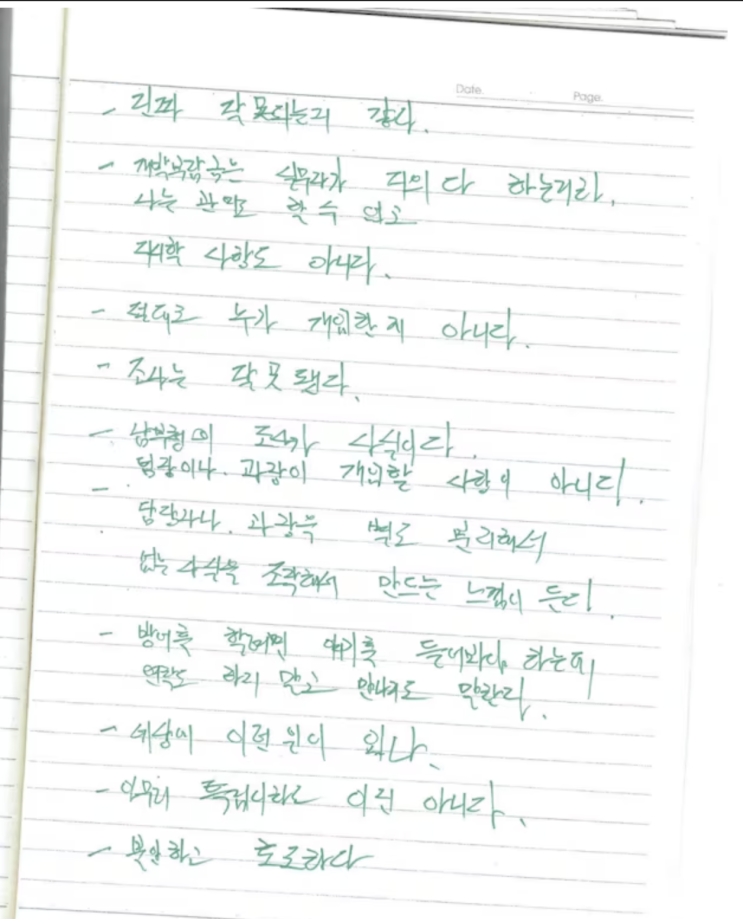 Date. Page.
- 진짜 잘못되는거 같다.
- 실무자가 거의 다 하는거라,
나는 관여도 할 수 없고
지시할 사항도 아니다.
- 절대로 누가 개입한지 아니다.
- 조사는 잘못됐다.
- 조사가 사실이다.
팀장이나, 과장이 개입할 사항이 아니다.
- 담당자나, 과장을 별도 분리해서
없는 사실을 조작해서 만드는 느낌이 든다.
- 방어를 할려면 얘기를 들어봐야 하는데
연락도 하지 말고 만나지도 말란다.
- 세상에 이런일이 있나.
- 아무리 특검이라도 이건 아니다.
- 불안하고 초조하다